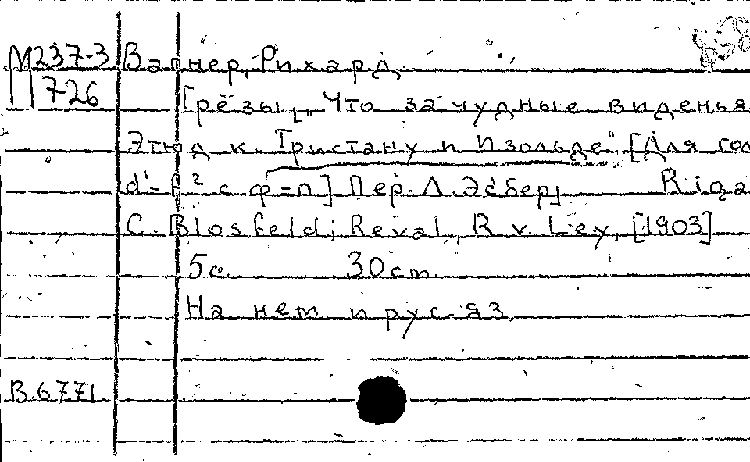 М237-3 Вагнер, Рихард.
П726 Грёзы. „Что за чудные виденья
Этюд к „Тристану и Изольде" [Для гол
d'-f² с ф-п] Пер. Л. Эсбер, Riga
C. Blosfeld; Reval, R. v. Ley, [1903]
5с. 30 cm.
На нем и рус. яз.
В 6771